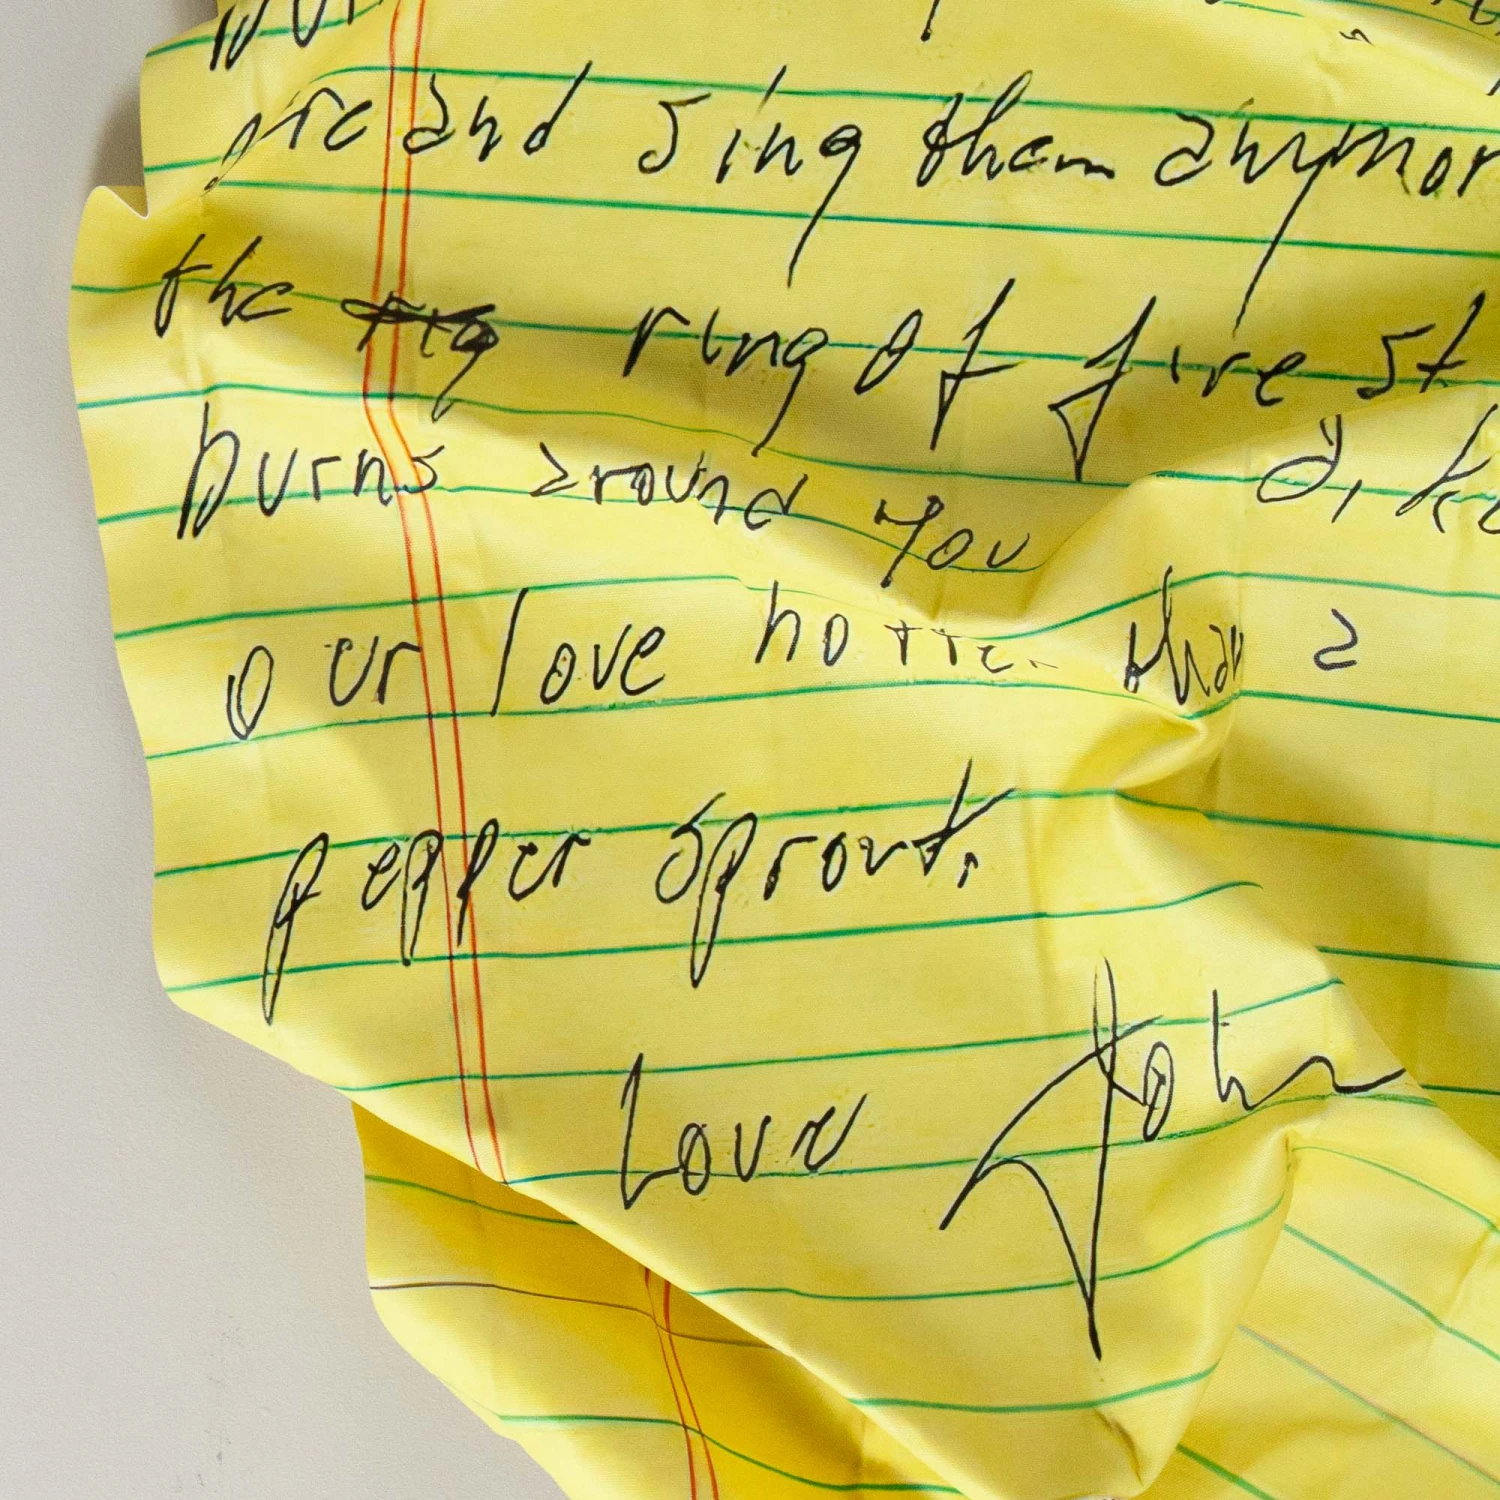 and sing them anymor
the rig ring of fire st
burns around you &, ke
our love hotter than a
pepper sprout.
Love John